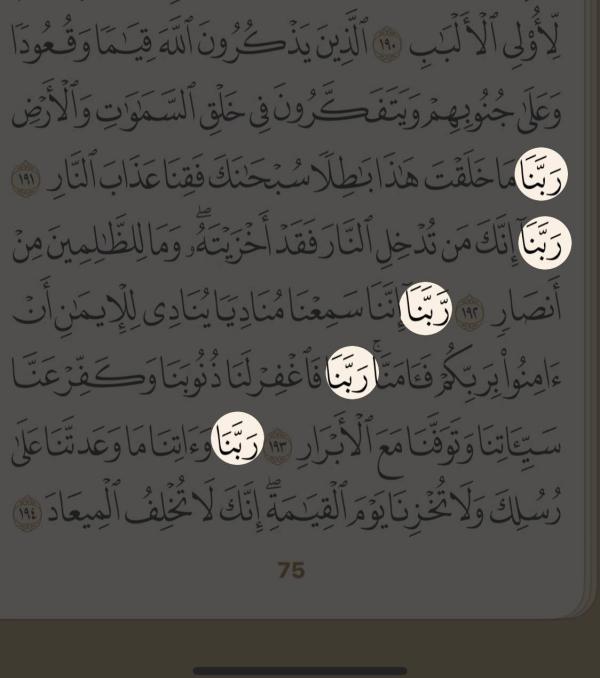 لِّأُو۟لِى ٱلْأَلْبَـٰبِ ١٩٠ ٱلَّذِينَ يَذْكُرُونَ ٱللَّهَ قِيَـٰمًا وَقُعُودًا
وَعَلَىٰ جُنُوبِهِمْ وَيَتَفَكَّرُونَ فِى خَلْقِ ٱلسَّمَـٰوَٰتِ وَٱلْأَرْضِ
رَبَّنَا مَا خَلَقْتَ هَـٰذَا بَـٰطِلًا سُبْحَـٰنَكَ فَقِنَا عَذَابَ ٱلنَّارِ ١٩١
رَبَّنَآ إِنَّكَ مَن تُدْخِلِ ٱلنَّارَ فَقَدْ أَخْزَيْتَهُۥۖ وَمَا لِلظَّـٰلِمِينَ مِنْ
أَنصَارٍ ١٩٢ رَّبَّنَآ إِنَّنَا سَمِعْنَا مُنَادِيًا يُنَادِى لِلْإِيمَـٰنِ أَنْ
ءَامِنُوا۟ بِرَبِّكُمْ فَـَٔامَنَّاۚ رَبَّنَا فَٱغْفِرْ لَنَا ذُنُوبَنَا وَكَفِّرْ عَنَّا
سَيِّـَٔاتِنَا وَتَوَفَّنَا مَعَ ٱلْأَبْرَارِ ١٩٣ رَبَّنَا وَءَاتِنَا مَا وَعَدتَّنَا عَلَىٰ
رُسُلِكَ وَلَا تُخْزِنَا يَوْمَ ٱلْقِيَـٰمَةِۖ إِنَّكَ لَا تُخْلِفُ ٱلْمِيعَادَ ١٩٤
75